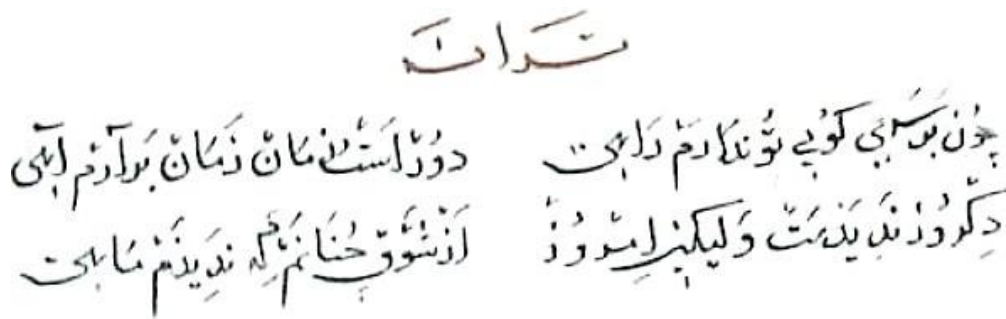 ترانه
چُون بَر سَرِ کُویِ تُو نَدارَمْ رَاهی دُورْ اَسْت زمانْ زَمانْ بَرآرَمْ آهی
دی رُوز نَدِیدَمَتْ وَلیکِنْ اِمْرُوزْ اَزْ شَوْقِ چُنَانَمْ کِه نَدِیدَمْ مَاهی